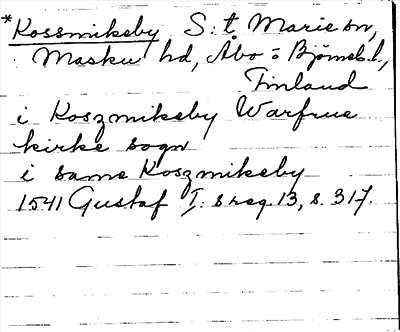 *Kossmikeby S:t Marie sn,
Masku hd, Åbo o Björneb. l.,
Finland
i Koszmikeby Warfrue
kirke sogn
i same Koszmikeby
1541 Gustaf I:s reg 13, s. 317.